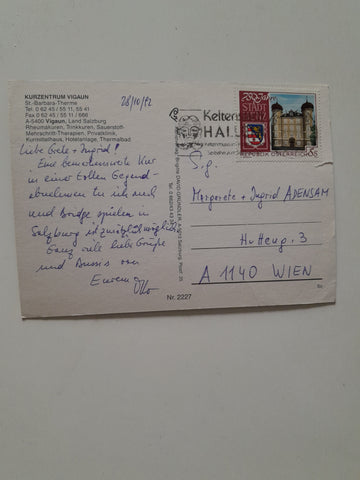 KURZENTRUM VIGAUN
St.-Barbara-Therme
Tel. 0 62 45 / 55 11, 55 41
Fax 0 62 45 / 55 11 / 666
A-5400 Vigaun, Land Salzburg
Rheumakuren, Trinkkuren, Sauerstoff-
Mehrschritt-Therapien, Privatklinik,
Kurmittelhaus, Hotelanlage, Thermalbad
28/10/92
Liebe Grete + Ingrid!
Eine Kur
in einer tollen Gegend -
abnehmen tu ich auch
und Bridge spielen in
Salzburg ist zusätzl. möglich.
Ganz viele liebe Grüße
und Bussis von
Eurem
Otto
STADT
REPUBLIK ÖSTERREICH
Kelten
HALL
S.g.
Margarete + Ingrid ADENSAM
3
A 1140 WIEN
Nr. 2227